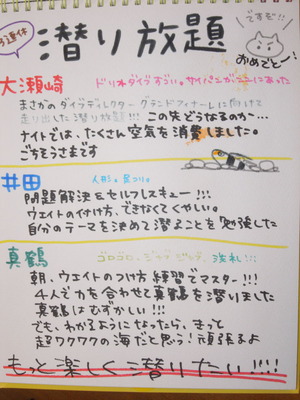 3連休
ですぞ!!
潜り放題
おめでとー!
大瀬崎
まさかのダイブディレクター グランドフィナーレに向けて
走り出した潜り放題!!! この先どうなるのか…
ナイトでは、たくさん空気を消費しました。
ごちそうさまです
井田
問題解決とセルフレスキュー!!!
ウエイトの付け方、できなくてくやしい。
自分のテーマを決めて潜ることを勉強した
真鶴
ゴロゴロ、ジャブジャブ、洗礼!!!
朝、ウエイトのつけ方練習でマスター!!!
4人で力を合わせて真鶴を潜りました
真鶴はむずかしい!!!
でも、わかるようになったら、きっと
超ワクワクの海だと思う! 頑張るよ
もっと楽しく潜りたい!!!!